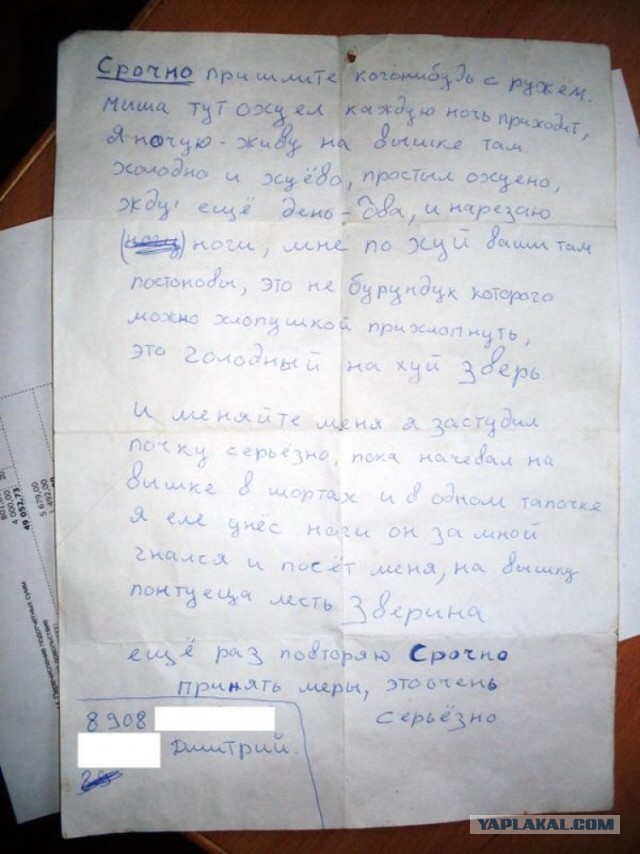 Срочно пришлите когонибудь с ружём.
миша тут охуел каждую ночь приходит,
я ночую-живу на вышке там
холодно и хуёво, простыл охуено,
жду ещё день-два, и нарезаю
ноги, мне по хуй ваши там
постоновы, это не бурундук которого
можно хлопушкой прихлопнуть,
это голодный на хуй зверь
и меняйте меня я застудил
почку серьёзно, пока начевал на
вышке в шортах и в одном тапочке
я еле унёс ноги он за мной
гнался и посёт меня, на вышку
понтуеца лесть Зверина
ещё раз повторяю Срочно
принять меры, это очень
серьёзно
8908
Дмитрий.
49 052,72
4 000,00
5 679,00
YAPLAKAL.COM